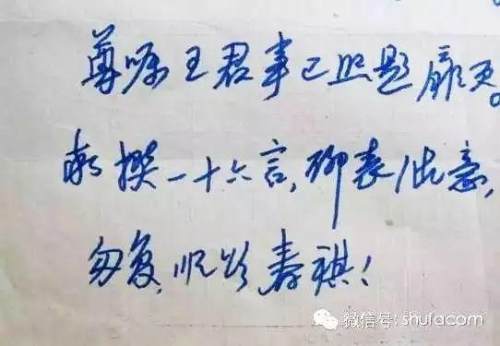 尊嘱王君事已照题
撰一十六言,聊表此意,
匆复,顺颂春祺!
微信号: shufacom